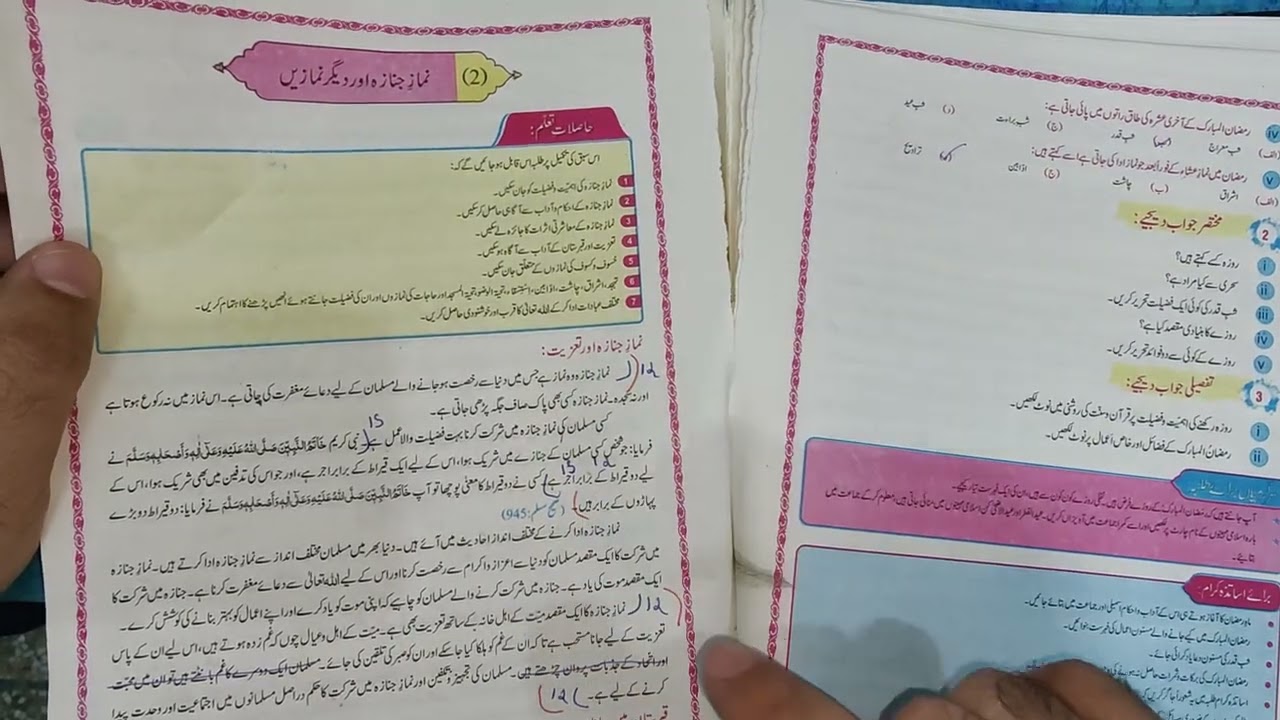 (2) نمازِ جنازہ اور دیگر نمازیں
حاصلاتِ تعلّم:
اس سبق کی تکمیل پر طلبہ اس قابل ہو جائیں گے کہ:
1 نمازِ جنازہ کی اہمیت و فضیلت کو جان سکیں۔
2 نمازِ جنازہ کے احکام و آداب سے آگاہی حاصل کر سکیں۔
3 نمازِ جنازہ کے معاشرتی اثرات کا جائزہ لے سکیں۔
4 تعزیت اور قبرستان کے آداب سے آگاہ ہو سکیں۔
5 خسوف و کسوف کی نمازوں کے متعلق جان سکیں۔
6 تہجد، اشراق، چاشت، اوّابین، استسقا، تحیۃ الوضو، تحیۃ المسجد اور حاجات کی نمازوں اور ان کی فضیلت جانتے ہوئے انھیں پڑھنے کا اہتمام کریں۔
7 مختلف عبادات ادا کر کے اللہ تعالیٰ کا قرب اور خوشنودی حاصل کریں۔
نمازِ جنازہ اور تعزیت:
12 نمازِ جنازہ وہ نماز ہے جس میں دنیا سے رخصت ہو جانے والے مسلمان کے لیے دعائے مغفرت کی جاتی ہے۔ اس نماز میں نہ رکوع ہوتا ہے
اور نہ سجدہ۔ نمازِ جنازہ کسی بھی پاک صاف جگہ پڑھی جاتی ہے۔
کسی مسلمان کی نمازِ جنازہ میں شرکت کرنا بہت فضیلت والا عمل ہے۔ 15 نبی کریم خَاتَمُ النَّبِيِّينَ صَلَّى اللهُ عَلَيْهِ وَعَلَى آلِهِ وَأَصْحَابِهِ وَسَلَّمَ نے
فرمایا: جو شخص کسی مسلمان کے جنازے میں شریک ہوا، اس کے لیے ایک قیراط کے برابر اجر ہے، اور جو اس کی تدفین میں بھی شریک ہوا، اس کے
لیے دو قیراط کے برابر اجر ہے 15 12 کسی نے دو قیراط کا معنی پوچھا تو آپ خَاتَمُ النَّبِيِّينَ صَلَّى اللهُ عَلَيْهِ وَعَلَى آلِهِ وَأَصْحَابِهِ وَسَلَّمَ نے فرمایا: دو قیراط دو بڑے
پہاڑوں کے برابر ہیں (صحیح مسلم: 945)
نمازِ جنازہ ادا کرنے کے مختلف انداز احادیث میں آئے ہیں۔ دنیا بھر میں مسلمان مختلف انداز سے نمازِ جنازہ ادا کرتے ہیں۔ نمازِ جنازہ
میں شرکت کا ایک مقصد مسلمان کو دنیا سے اعزاز و اکرام سے رخصت کرنا اور اس کے لیے اللہ تعالیٰ سے دعائے مغفرت کرنا ہے۔ جنازہ میں شرکت کا
ایک مقصد موت کی یاد ہے۔ جنازہ میں شرکت کرنے والے مسلمان کو چاہیے کہ اپنی موت کو یاد کرے اور اپنے اعمال کو بہتر بنانے کی کوشش کرے۔
12 نمازِ جنازہ کا ایک مقصد میّت کے اہل خانہ کے ساتھ تعزیت بھی ہے۔ میّت کے اہل و عیال چوں کہ غم زدہ ہوتے ہیں، اس لیے ان کے پاس
تعزیت کے لیے جانا مستحب ہے تاکہ ان کے غم کو ہلکا کیا جا سکے اور ان کو صبر کی تلقین کی جائے۔ مسلمان ایک دوسرے کا غم بانٹتے ہیں تو ان میں محبت
اور اتحاد کے جذبات پروان چڑھتے ہیں۔ مسلمان کی تجہیز و تکفین اور نمازِ جنازہ میں شرکت کا حکم دراصل مسلمانوں میں اجتماعیت اور وحدت پیدا
کرنے کے لیے ہے۔ 12
iv رمضان المبارک کے آخری عشرہ کی طاق راتوں میں پائی جاتی ہے:
(الف) شبِ معراج (ب) شبِ قدر (ج) شبِ برات (د) شبِ عید
v رمضان میں نمازِ عشاء کے فوراً بعد جو نماز ادا کی جاتی ہے اسے کہتے ہیں:
(الف) اشراق (ب) چاشت (ج) اوّابین تراویح
2 مختصر جواب دیجیے:
i روزہ کسے کہتے ہیں؟
ii سحری سے کیا مراد ہے؟
iii شبِ قدر کی کوئی ایک فضیلت تحریر کریں۔
iv روزے کا بنیادی مقصد کیا ہے؟
v روزے کے کوئی سے دو فوائد تحریر کریں۔
3 تفصیلی جواب دیجیے:
i روزہ رکھنے کی اہمیت و فضیلت پر قرآن و سنت کی روشنی میں نوٹ لکھیں۔
ii رمضان المبارک کے فضائل اور خاص اعمال پر نوٹ لکھیں۔
برائے طلبہ
آپ جانتے ہیں کہ رمضان المبارک کے روزے فرض ہیں۔ نفلی روزے کون کون سے ہیں، ان کی ایک فہرست تیار کیجیے۔
بارہ اسلامی مہینوں کے نام چارٹ پر لکھیں اور اسے کمرا جماعت میں آویزاں کریں۔ عید الفطر اور عید الاضحیٰ کن اسلامی مہینوں میں منائی جاتی ہیں؛ معلوم کر کے جماعت میں
بتائیے۔
برائے اساتذہ کرام:
ماہِ رمضان کا آغاز ہوتے ہی اس کے آداب و احکام اسمبلی اور جماعت میں بتائے جائیں۔
رمضان المبارک میں کیے جانے والے مسنون اعمال کی فہرست بنوائیں۔
شبِ قدر کی مسنون دعا یاد کرائی جائے۔
رمضان المبارک کی برکات و ثمرات حاصل
اساتذہ کرام طلبہ میں یہ شعور اجاگر کریں کہ